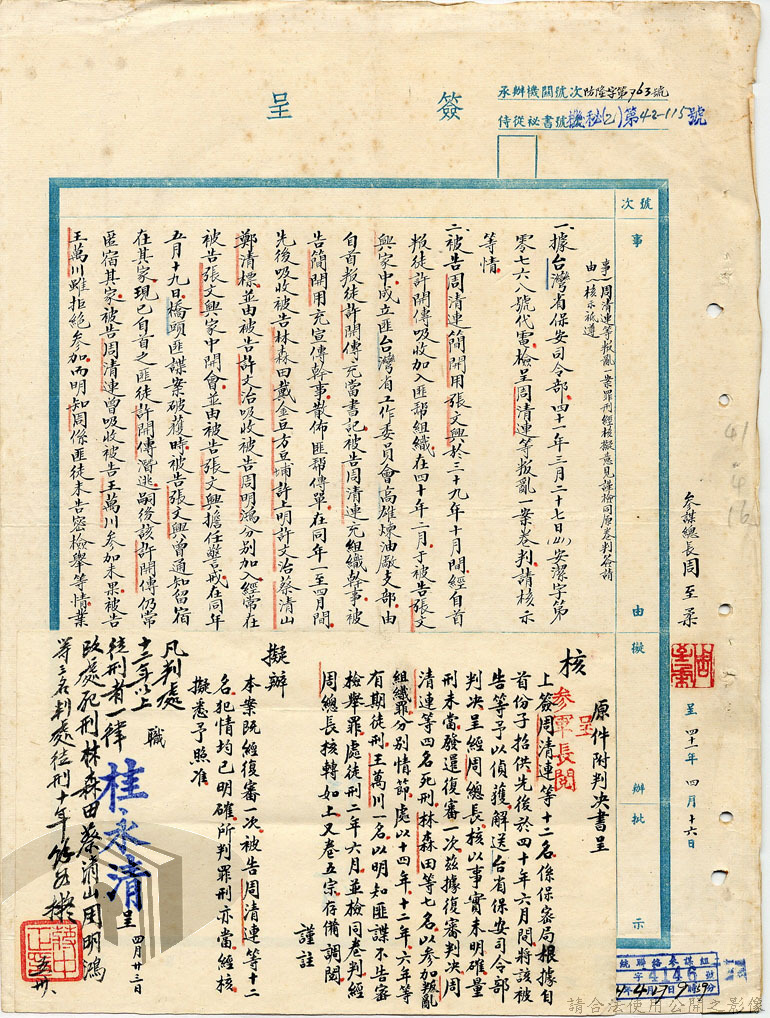 簽呈
承辦機關號次防隆字第763號
侍從祕書號機秘(乙)第42-115號
號次
事由
擬辦
批示
參謀總長周至柔
呈 四十一年 四月 十六日
事由 周清連等叛亂一案罪刑經核擬意見謹檢同原卷判簽請核示祗遵
一、據台灣省保安司令部四十一年三月二十七日(41)安潔字第
零七六八號代電檢呈周清連等叛亂一案卷判請核示
等情
二、被告周清連簡開用張文興於三十九年十月間經自首
叛徒許開傳吸收加入匪幫組織在四十年二月于被告張文
興家中成立匪台灣省工作委員會高雄煉油廠支部由
自首叛徒許開傳充當書記被告周清連充組織幹事被
告簡開用充宣傳幹事散佈匪幫傳單在同年一至四月間
先後吸收被告林森田戴金豆方旦埔許上明許文治蔡清山
鄭清標並由被告許文治吸收被告周明鴻分別加入經常在
被告張文興家中開會並由被告張文興擔任警戒在同年
五月十九日橋頭匪諜案破獲時被告張文興曾通知留宿
在其家現已自首之匪徒許開傳潛逃嗣後該許開傳仍常
匿宿其家被告周清連曾吸收被告王萬川參加未果被告
王萬川雖拒絕參加而明知周係匪徒未告密檢舉等情業
原件附判决書呈
核
呈參軍長閱
上簽周清連等十二名係保密局根據自
首份子招供先後於四十年六月間將該被
告等予以偵獲解送台省保安司令部
判决呈經周總長核以事實未明確量
刑未當發還復審一次茲據復審判决周
清連等四名死刑林森田等七名以參加叛亂
組織罪分別情節處以十四年、十二年、六年等
有期徒刑王萬川一名以明知匪諜不告密
檢舉罪處徒刑二年六月並檢同卷判經
周總長核轉如上又卷五宗存備調閱
謹註
擬辦
本案既經復審一次被告周清連等十二
名犯情均已明確所判罪刑亦當經核
擬悉予照准
職 桂永清 呈 四月廿三日
凡判處
十二年以上
徒刑者一律
改處死刑林森田蔡清山周明鴻
等三名判處徒刑十年餘如擬
蔣中正印
41.4.16
統聯絡參謀組
字4146號
請合法使用公開之影像